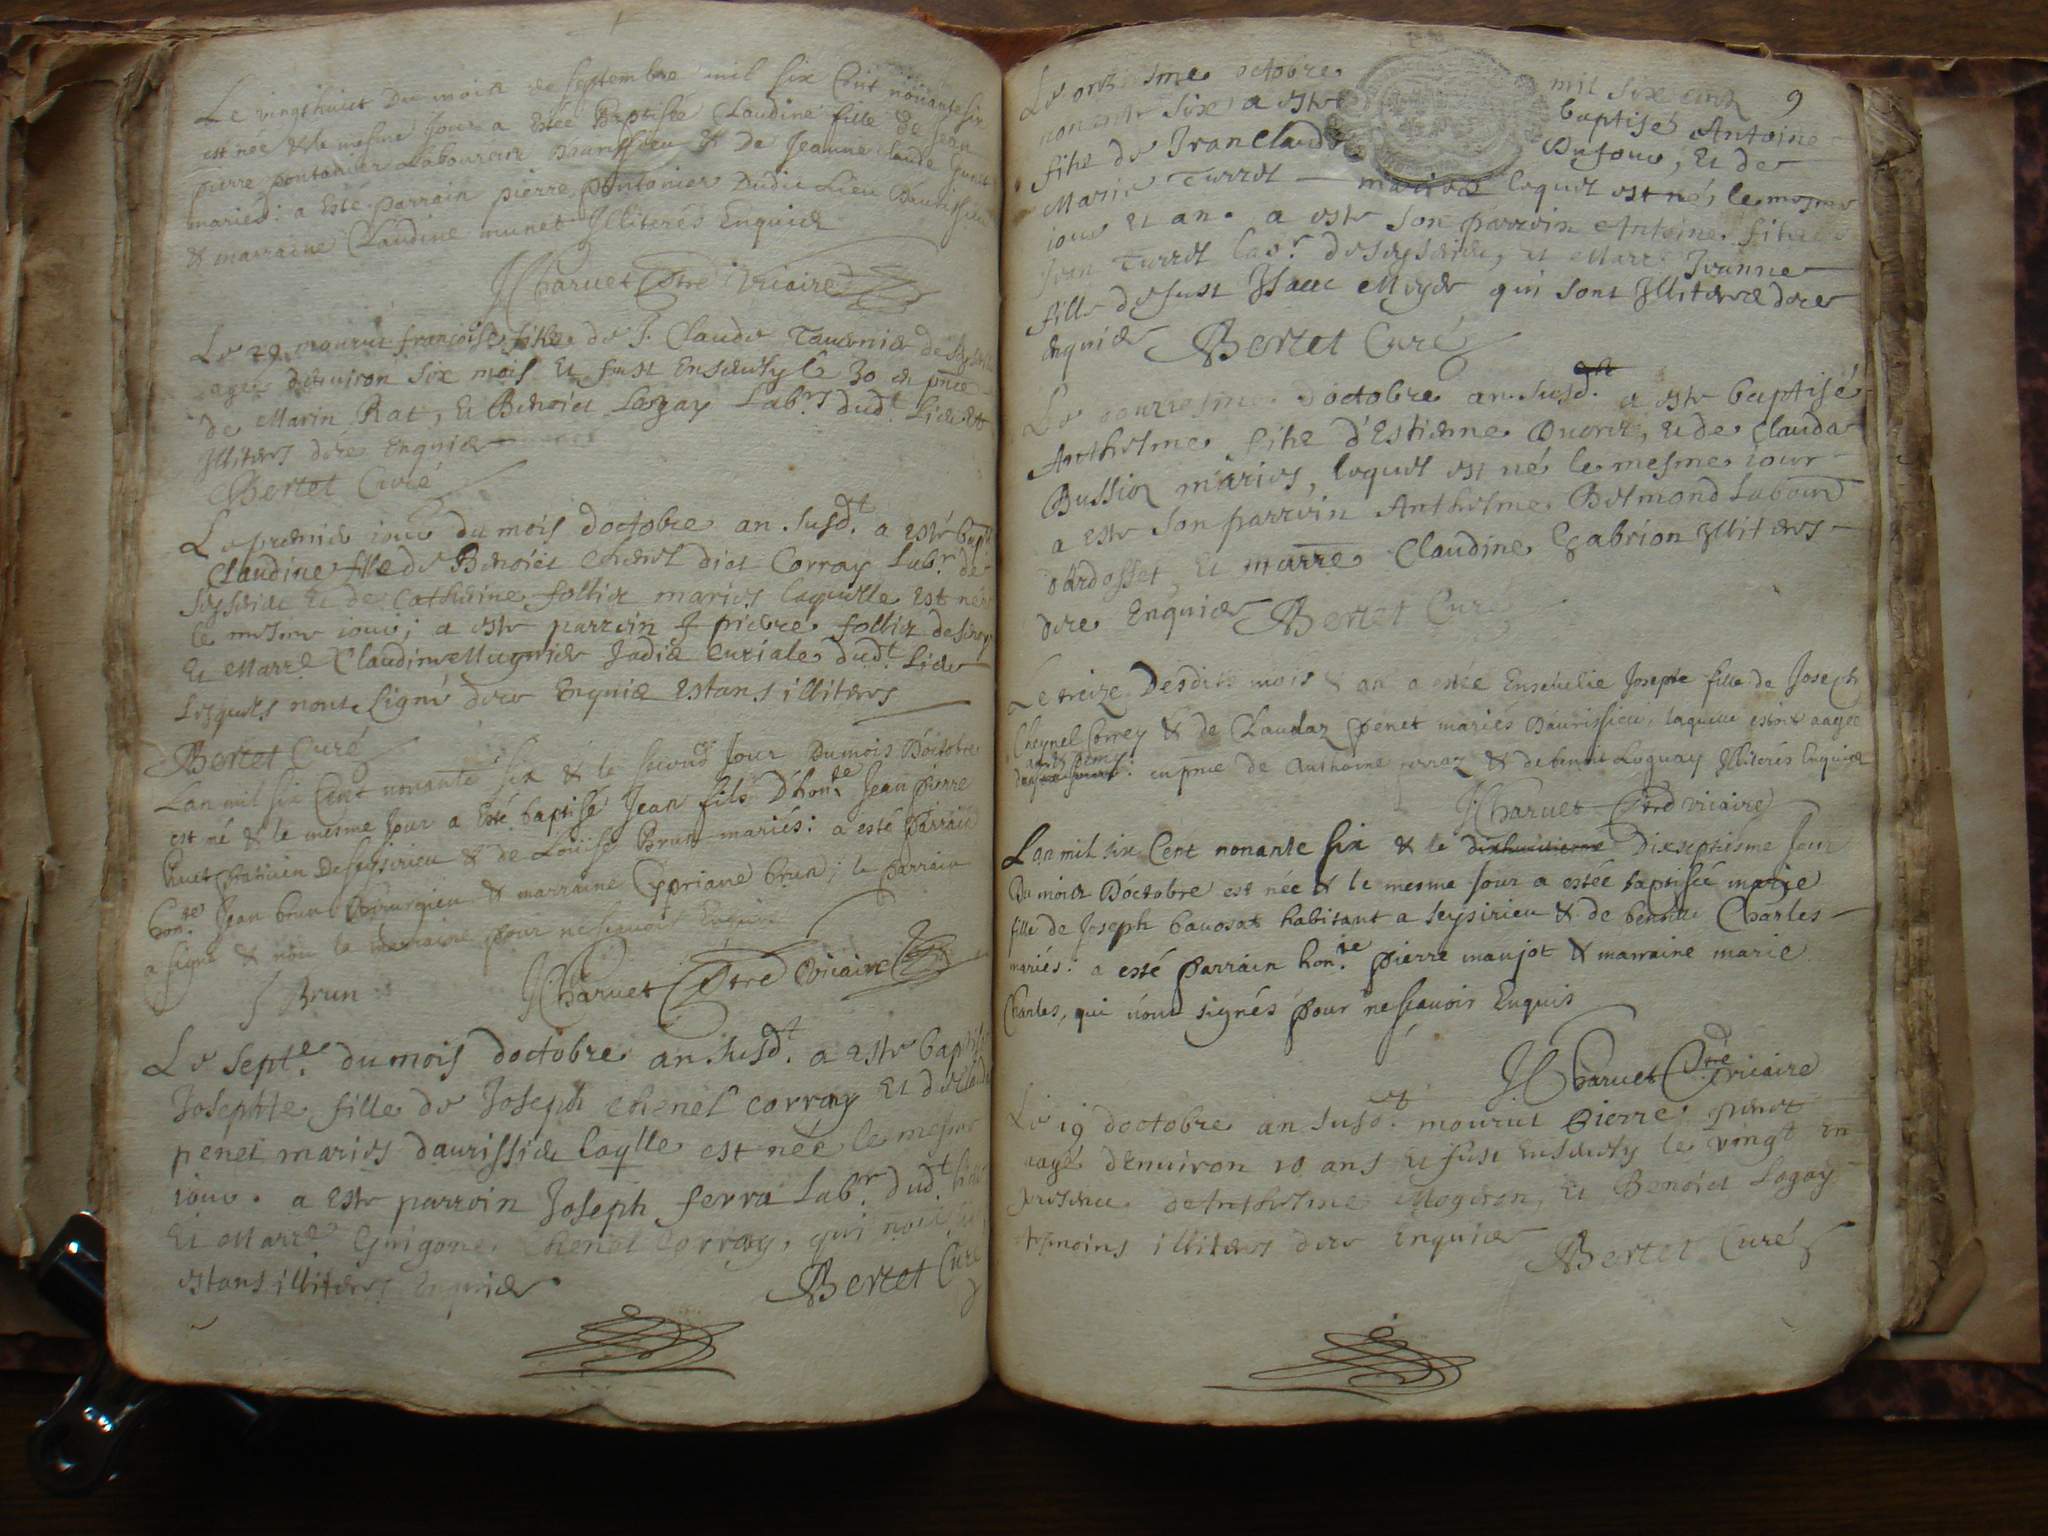 Le vingthuict Du mois de septembre mil six Cent nonante six
est née & le mesme Jour a Estée Baptisée Claudine fille de Jean
pierre pontonier Laboureur & De Jeanne claude
mariés: a Esté parrain pierre pontonier Dudit Lieu
& marraine Claudine munet Illiterés Enquis
JCharuet Ptre Vicaire
Le 29 mourut françoise fille de S. Claude Tauernier de
agée denuiron six mois Et fust Enseuely le 30 en pnce
de Marin Rat, Et Benoict Logay Labrs dudt Lieu
Illiteres dere Enquis
Bertet Curé
Le premier iour du mois doctobre an susdt. a esté bapt
Claudine fille de Benoict Chenel dict Corray Labr. de
Seysirieu Et de Catherine follier mariés laquelle Est née
le mesme iour; a este parrein pierre follier de
Et Marre Claudine Mugnier Jadis Curiale dudt. Lieu
Lesquels nont signé dere Enquis Estans illiteres
Bertet Curé
Lan mil six Cent nonante six & le second Jour Du mois Doctobre
est né & le mesme Jour a Esté baptisé Jean fils D'honle Jean pierre
huet praticien De seysirieu & de Louise Brun mariés: a esté parrain
hon.le Jean brun Chirurgien & marraine Cypriane brun; le parrain
a signé & non la marraine pour ne scauoir Enquis
J Brun JCharuet Ptre Vicaire
Le septe. du mois doctobre an susdt. a este bapti
Josephte fille de Joseph Chenel Corray Et de
penet mariés daurissieu laqlle est née le mesme
iour. a Este parrein Joseph ferra Labr. dudt. lieu
Et Marre Guigone Chenel Corray, qui nont
estans illiteres Enquis
Bertet Curé
9
Le onziesme octobre mil six cent
nonante six a este baptisé Antoine
fils de Jean Claude Dufour, Et de
Marie Turrel mariés lequel est né, le mesme
iour Et an. a este son parrein Antoine fils
Jean Turrel Labr. de seysirieu, et Marre Jeanne
fille de fust Isaac qui sont Illiteres dere
Enquis Bertet Curé
Le douziesme doctobre an susdt. a este baptisé
Anthelme fils d'Estienne Et de Clauda
Bussioz mariés, lequel est né le mesme iour
a este son parrein Anthelme Belmond Labour
dArdosset, Et marre Claudine Gabrion Illiteres
dere Enquis Bertet Curé
Le treize Desdits mois & an a estée Enseuelie Josepte fille de Joseph
Cheynel Correy & de Claudaz penet mariés Daurissieu, laquelle estoit aagée
en pnce de Anthoine & de benoit Loguay Illiterés Enquis
JCharuet Ptre Vicaire
Lan mil six Cent nonante six & le dixhuitieme Dixseptiesme Jour
Du mois Doctobre est née & le mesme Jour a estée baptisée marie
fille de Joseph bauosat habitant a seysirieu & de benoite Charles
mariés: a esté parrain hon.le pierre maujot & marraine marie
Charles, qui n'ont signés pour ne scauoir Enquis
JCharuet Ptre Vicaire
Le 19 doctobre an susdt. mourut Pierre penet
aagé denuiron 10 ans Et fust Enseuely le vingt en
presence de Anthelme Et Benoict Logay
tesmoins illiteres dere Enquis
Bertet Curé